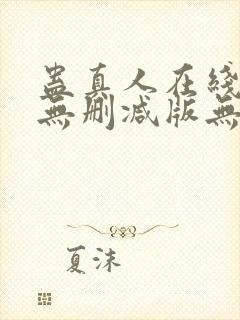 蛊真人在綫
無删减版無
夏沫